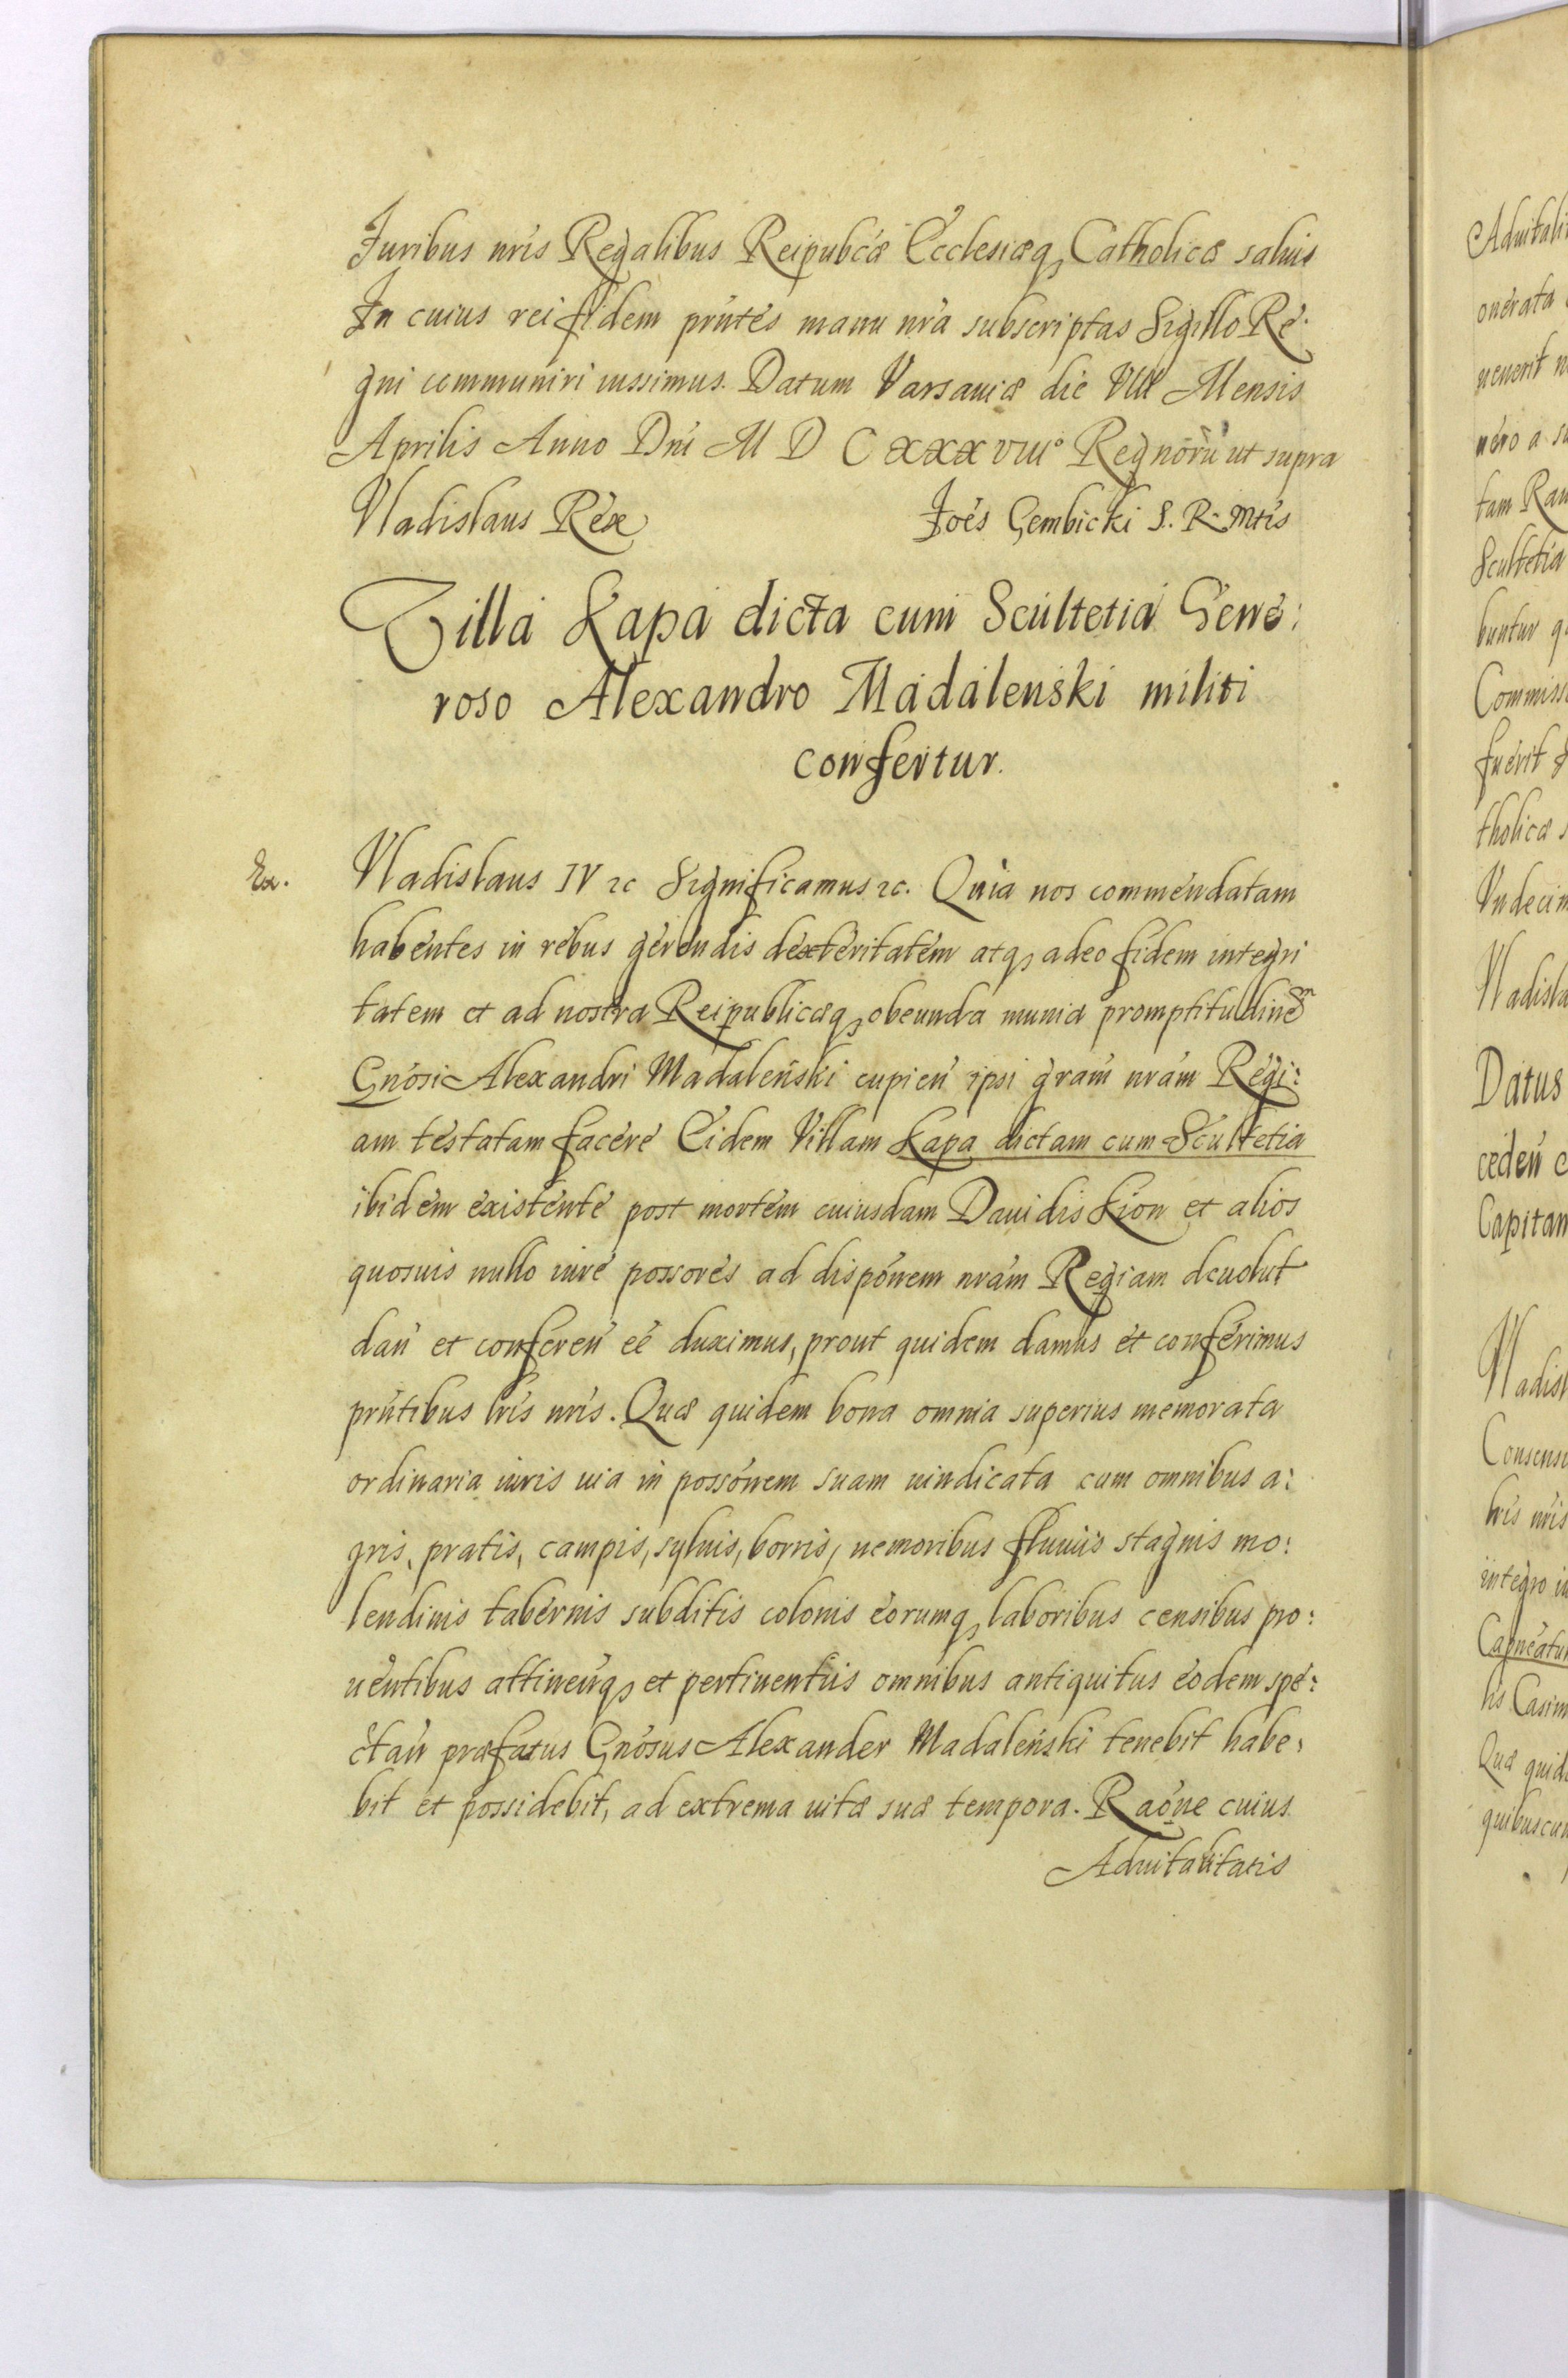 Juribus nris Regalibus Reipubcæ Ecclesiæq, Catholicæ saluis
In cuius rei fidem prntes manu nra subscriptas Sigillo Re:
gni communiri iussimus. Datum Varsauiæ die VIII Mensis
Aprilis Anno Dni M D C XXXVIII° Regnorū ut supra
Vladislaus Rex
Joes Gembicki S. R. Mtis
Villa Kapa dicta cum Scultetia Gene:
roso Alexandro Madalenski militi
confertur.
Ex.
Vladislaus IV &c Significamus &c. Quia nos commendatam
habentes in rebus gerendis dexteritatem atq, adeo fidem integri
tatem et ad nostra Reipublicæq, obeunda munia promptitudinem
Gnosi Alexandri Madaleński cupień ipsi gram nram Regi:
am testatam facere Eidem Villam Kapa dictam cum Scultetia
ibidem existente post mortem cuiusdam Dauidis Kion et alios
quosuis nullo iure possores ad disponem nram Regiam deuolut
dań et confereń eé duximus, prout quidem damus et conferimus
prntibus lris nris. Quæ quidem bona omnia superius memorata
ordinaria iuris uia in possonem suam uindicata cum omnibus a:
gris, pratis, campis, syluis, borris, nemoribus fluuiis stagnis mo:
lendinis tabernis subditis colonis eorumq, laboribus censibus pro:
uentibus attineńq, et pertinentiis omnibus antiquitus eodem spe:
ctań præfatus Gnosus Alexander Madaleński tenebit habe:
bit et possidebit, ad extrema uitæ suæ tempora. Raone cuius
Aduitalitatis
Aduitali
onerata
uenerit n
uero a su
tam Rau
Scultetia
buntur q
Commiss
fuerit
tholicæ s
Vndecim
Vladisla
Datus
cedeń c
Capitan
Vladisl
Consensu
lris nris
integro iu
Capneatu
lis Casim
Quæ quid
quibuscun